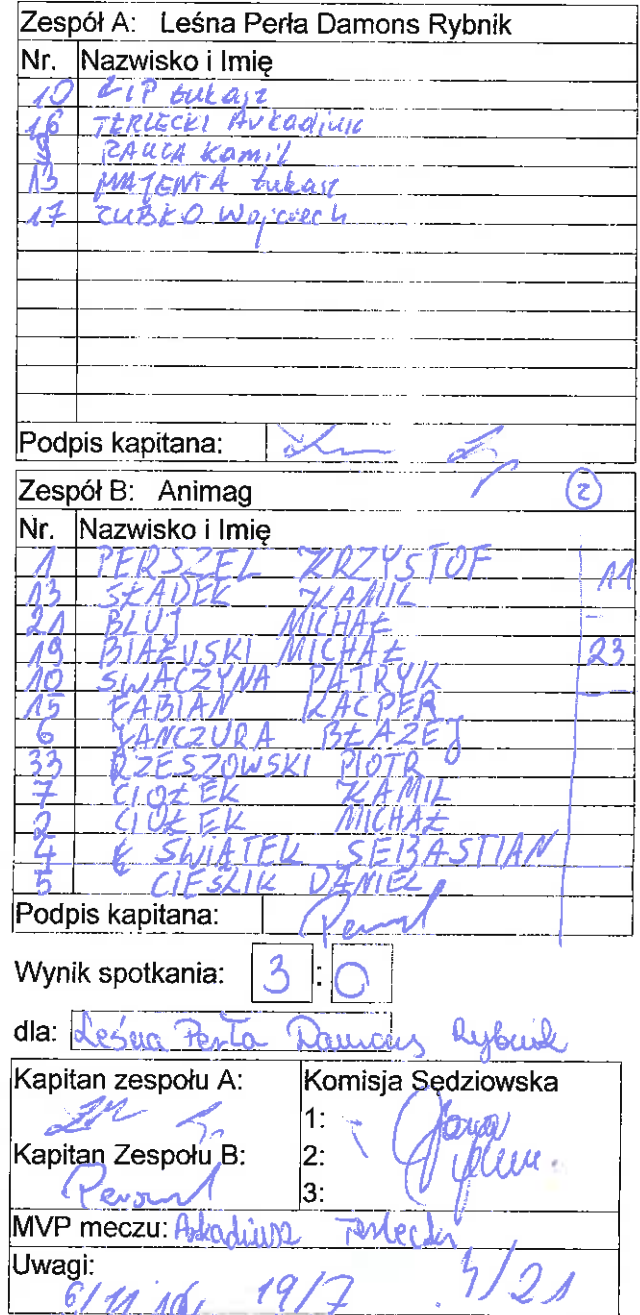 Zespół A: Leśna Perła Damons Rybnik
Nr. Nazwisko i Imię
10 ZIP Łukasz
16 TERLECKI Arkadiusz
RAUCA Kamil
13 MAJENTA Łukasz
17 ZUBKO Wojciech
Podpis kapitana:
Zespół B: Animag 2
Nr. Nazwisko i Imię
1 PERSZEL KRZYSTOF 11
13 SŁADEK KAMIL
21 BLUJ MICHAŁ -
19 BIAŁUSKI MICHAŁ 23
10 SWACZYNA PATRYK
15 FABIAN KACPER
6 JANCZURA BŁAŻEJ
33 RZESZOWSKI PIOTR
7 CIOŁEK KAMIL
2 CIOŁEK MICHAŁ
4 ŚWIATEK SEBASTIAN
5 CIEŚLIK DANIEL
Podpis kapitana:
Wynik spotkania: 3 : 0
dla: Leśna Perła Damons Rybnik
Kapitan zespołu A: Komisja Sędziowska
1:
Kapitan Zespołu B: 2:
3:
MVP meczu: Arkadiusz Terlecki
Uwagi:
6/11 16, 19/7 4/21